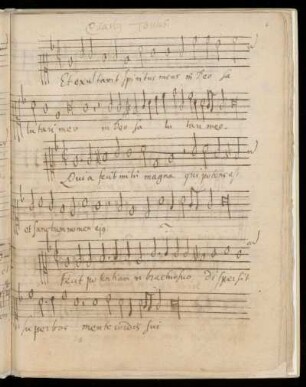 Octavi Toni
Et exultavit spiritus meus in Deo sa
lutari meo in Deo sa lu tari meo.
Quia fecit mihi magna qui potens est
et sanctum nomen ejus
Fecit potentiam in brachio suo Dispersit
superbos mente cordis sui